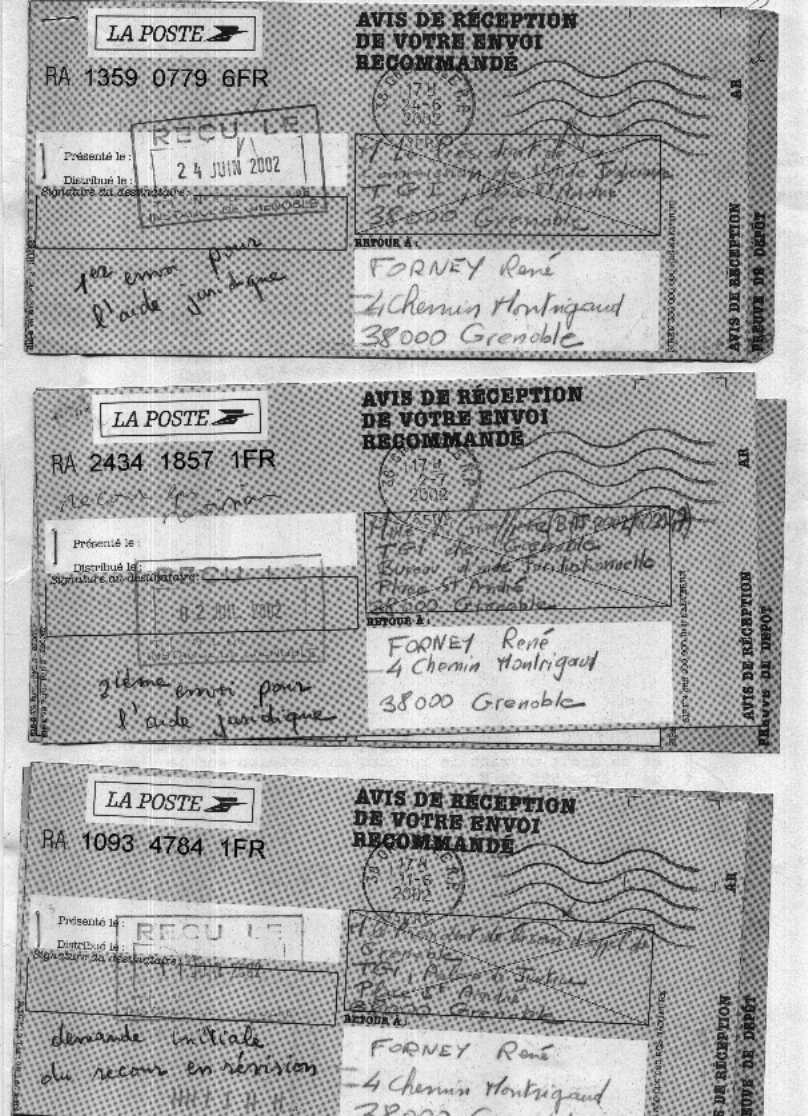 LA POSTE
AVIS DE RÉCEPTION
DE VOTRE ENVOI
RECOMMANDÉ
RA 1359 0779 6FR
AR
17 H
24-6
2002
REÇU LE
24 JUIN 2002
Présenté le :
Distribué le :
Signature du destinataire :
38000 Grenoble
RETOUR À :
FORNEY René
4 Chemin Montrigaud
38000 Grenoble
1er envoi pour
l'aide juridique
AVIS DE RÉCEPTION
PREUVE DE DÉPÔT
LA POSTE
AVIS DE RÉCEPTION
DE VOTRE ENVOI
RECOMMANDÉ
RA 2434 1857 1FR
AR
17 H
2-7
2002
Présenté le :
Distribué le :
Signature du destinataire :
REÇU LE
02 JUIL 2002
TGI de Grenoble
Bureau d'aide Juridictionnelle
Place St André
38000 Grenoble
RETOUR À :
FORNEY René
4 Chemin Montrigaud
38000 Grenoble
2ième envoi pour
l'aide juridique
AVIS DE RÉCEPTION
PREUVE DE DÉPÔT
LA POSTE
AVIS DE RÉCEPTION
DE VOTRE ENVOI
RECOMMANDÉ
RA 1093 4784 1FR
AR
17 H
11-6
2002
Présenté le :
Distribué le :
Signature du destinataire :
REÇU LE
Grenoble
TGI, Palais de Justice
Place St André
38000 Grenoble
RETOUR À :
FORNEY René
4 Chemin Montrigaud
demande initiale
du recour en révision
DE RÉCEPTION
DE DÉPÔT